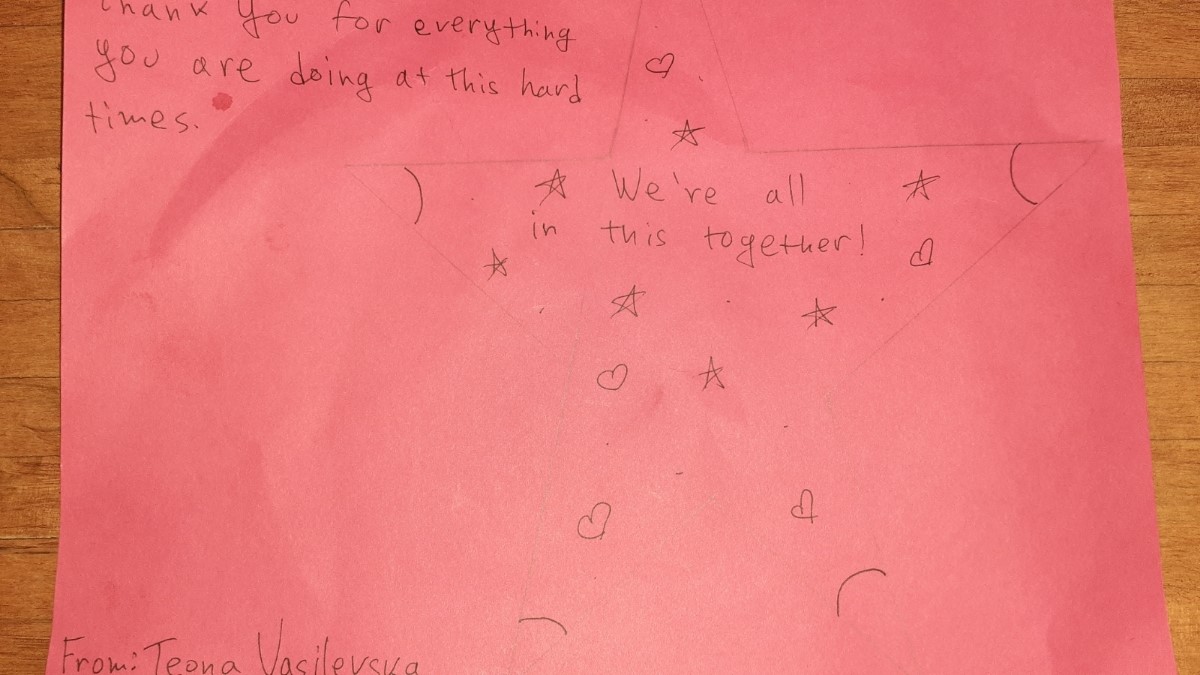 Thank You for everything
you are doing at this hard
times.
We're all
in this together!
From: Teona Vasilevska